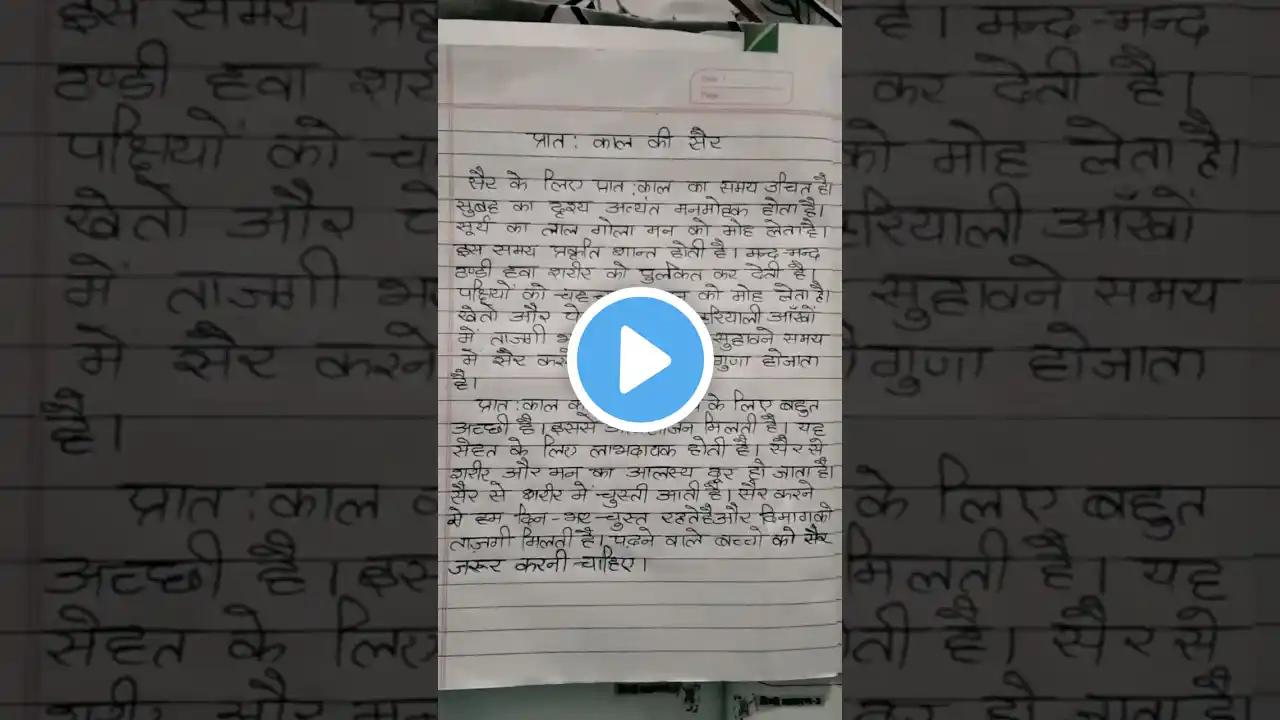 प्रात: काल की सैर
सैर के लिए प्रात:काल का समय उचित है।
सुबह का दृश्य अत्यंत मनमोहक होता है।
सूर्य का लाल गोला मन को मोह लेता है।
इस समय प्रकृति शान्त होती है। मन्द-मन्द
ठण्डी हवा शरीर को पुलकित कर देती है।
पक्षियों को को मोह लेता है।
खेतों और आँखों
में ताजगी सुहावने समय
में सैर होजाता
है।
प्रात:काल के लिए बहुत
अच्छी है। इससे मिलती है। यह
सेहत के लिए लाभदायक होती है। सैर से
शरीर और मन का आलस्य दूर हो जाता है।
सैर से शरीर में चुस्ती आती है। सैर करने
से हम दिन-भर चुस्त रहते है और दिमाग को
ताज़गी मिलती है। पढ़ने वाले बच्चो को सैर
जरूर करनी चाहिए।